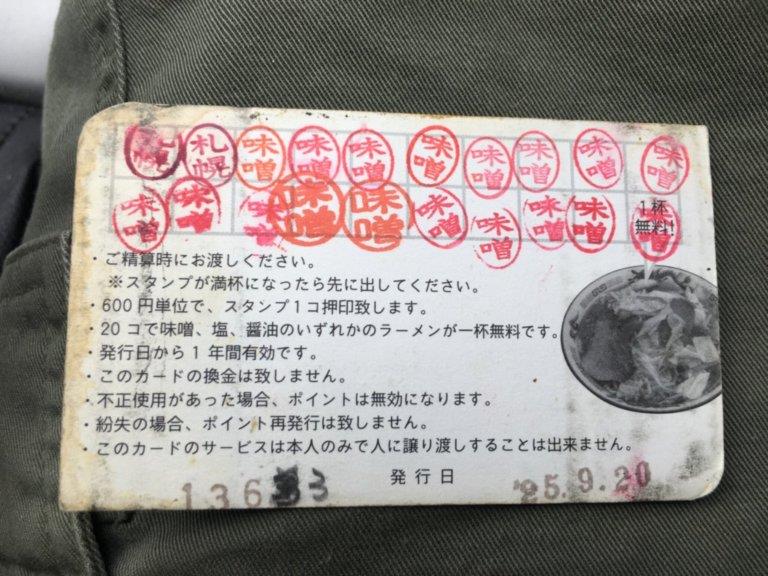 札幌 札幌 味噌 味噌 味噌 味噌 味噌 味噌 味噌 味噌
味噌 味噌 味噌 味噌 味噌 味噌 味噌 味噌 味噌 味噌
1杯
無料!
・ご精算時にお渡しください。
※スタンプが満杯になったら先に出してください。
・600円単位で、スタンプ1コ押印致します。
・20コで味噌、塩、醤油のいずれかのラーメンが一杯無料です。
・発行日から1年間有効です。
・このカードの換金は致しません。
・不正使用があった場合、ポイントは無効になります。
・紛失の場合、ポイント再発行は致しません。
・このカードのサービスは本人のみで人に譲り渡しすることは出来ません。
発行日 '25.9.20